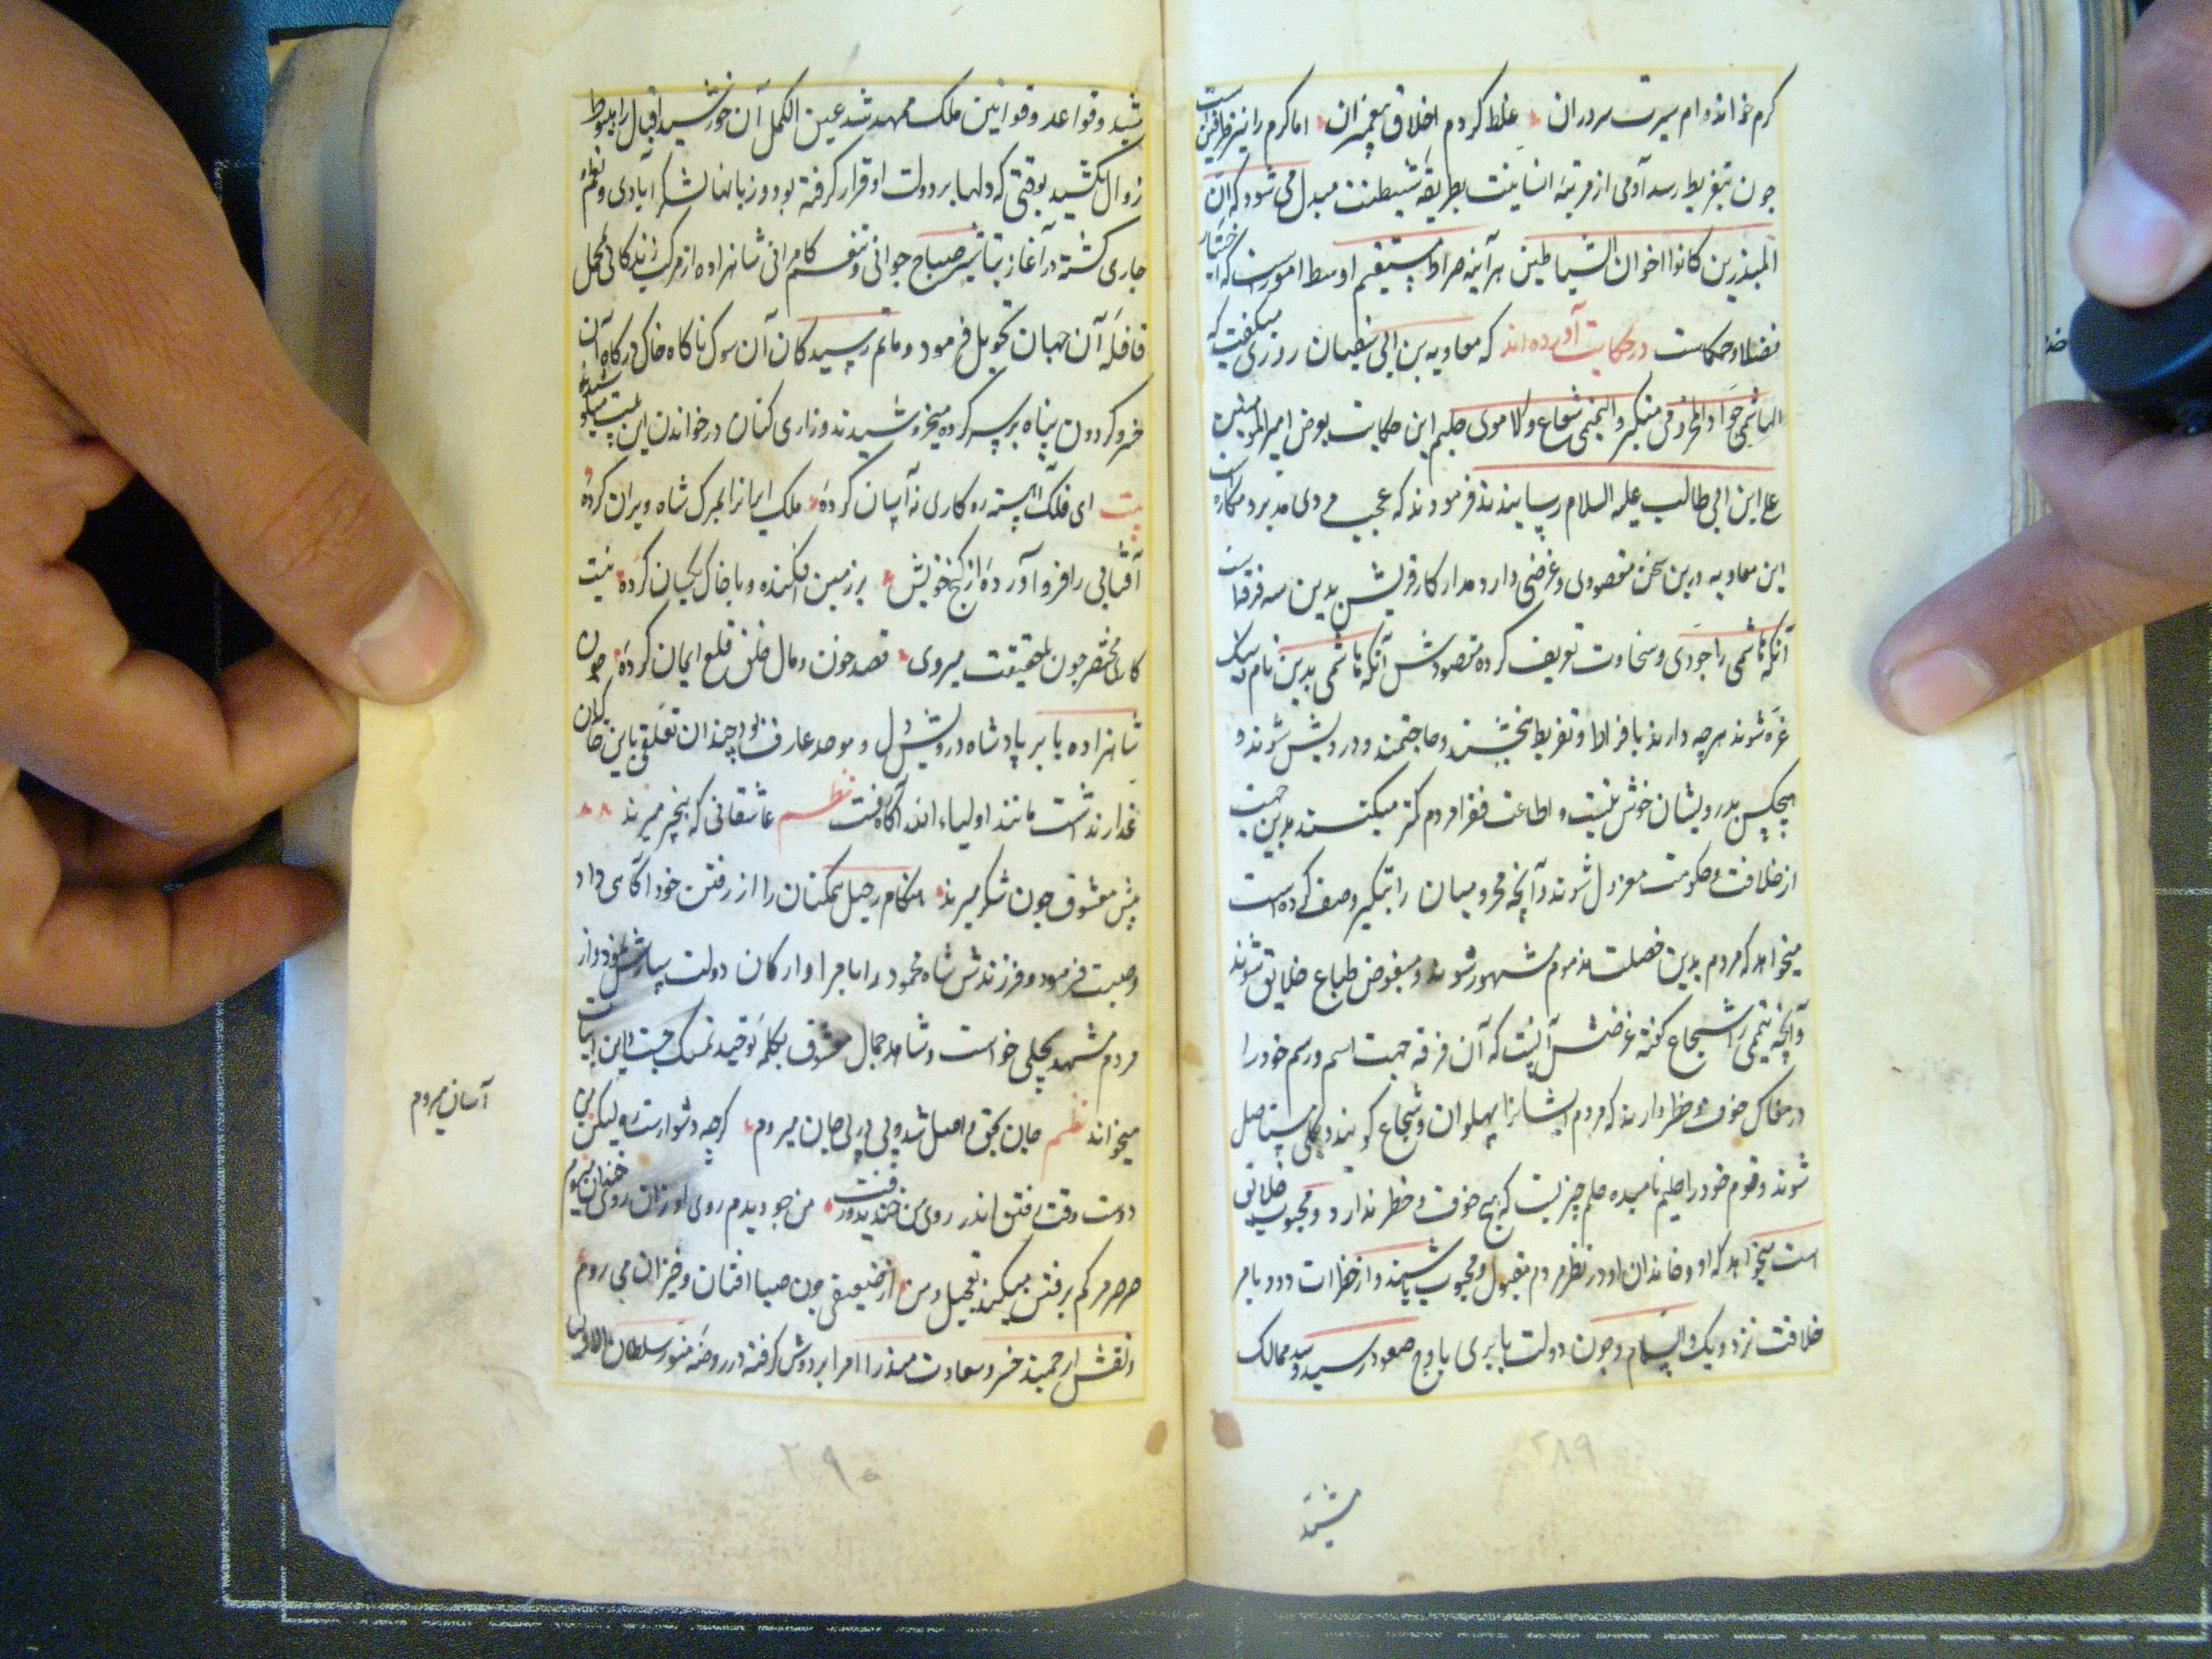 کرم خوانده‌ام سیرت سروران غلط کردم اخلاق پیغمبران اما کرم را نیز طرفین است
چون بتفریط رسد آدمی از مرتبه انسانیت بطریقه شیطنت مبدل می شود که ان
المبذرین کانوا اخوان الشیاطین هر آینه صراط مستقیم اوسط امورست که اختیار
فضلا و حکماست در حکایت آورده اند که معاویه بن ابی سفیان روزی میگفت که
الهاشمی جواد والمخزومی متکبر والتیمی شجاع والاموی حلیم این حکایت بعرض امیر المومنین
علی ابن ابی طالب علیه السلام رسانیدند فرمودند که عجب مردی مدبر و مکارست
این معاویه درین سخن مقصودی و غرضی دارد مدار کار قریش بدین سه فرقه است
آنکه هاشمی را جودی و سخاوت تعریف کرده مقصودش آنکه هاشمی بدین نام نیک
غره شوند هر چه دارند بافراط و تفریط بخشند و حاجتمند و درویش شوند و
هیچکس بدرویشان خوش نیست و اطاعت فقرا مردم کمتر میکنند بدین جهت
از خلافت و حکومت معزول شوند و آنچه مخزومیان را بتکبر وصف کرده است
میخواهد که مردم بدین خصلت مذموم مشهور شوند و مبغوض طباع خلایق شوند
و آنچه تیمی را شجاع گفته غرضش آنست که آن فرقه جهت اسم و رسم خود را
در مغاک خوف و خطر دارند که مردم ایشانرا پهلوان و شجاع گویند و بکلی مستاصل
شوند و قوم خود را حلیم نامیده حلم چیزیست که هیچ خوف و خطر ندارد و محبوب خلایق
است میخواهد که او و خاندان او در نظر مردم مقبول و محبوب باشند و از خطرات دور و بامر
خلافت نزدیک والسلام و چون دولت بابری باوج صعود رسید و ممالک
مشید
مشید و قواعد و قوانین ملک ممهد شد عین الکمال آن خورشید اقبال را بهبوط
زوال کشید بوقتی که دلها بر دولت او قرار گرفته بود و زبانها بشکر آبادی و نعم او
جاری گشته در آغاز تباشیر صباح جوانی و تنعم کامرانی شاهزاده از مرکب زندگانی محمل
قافله آن جهان تحویل فرمود و ماتم رسیدگان آن سوک ناگاه خاک درگاه آن
خسرو گردون پناه بر سر کرده میخروشیدند و زاری کنان در خواندن این بیت میبودند
بیت ای فلک آهسته رو کاری نه آسان کرده ملک ایرانرا بمرگ شاه ویران کرده
آفتابی را فرو آورده از اوج خویش بر زمین افکنده و با خاک یکسان کرده نیست
کاری مختصر چون بحقیقت میروی قصد خون و مال خلق و قلع ایمان کرده چون
شاهزاده بابر پادشاه درویش دل و موحد عارف بود چندان تعلقی باین خاکدان
غدار نداشت مانند اولیاء الله آگاه رفت نظم عاشقانی که با خبر میرند
پیش معشوق چون شکر میرند هنگام رحیل ممکنان را از رفتن خود آگاهی داد
وصیت فرمود و فرزندش شاه محمود را با امرا و ارکان دولت سپارش نمود و از
مردم مشهد بحلی خواست و شاهد جمال معشوق بکلمه توحید تمسک جست و این ابیات
میخواند نظم جان بحق واصل شد و پی در پی جان میروم گرچه دشوارست ره لیکن من
آسان میروم
دوست وقت رفتن اندر روی من خندید و رفت من چو دیدم روی او زان روی خندان میروم
صرصر مرگم برفتن میکند تعجیل و من از ضعیفی چون صبا افتان و خیزان می روم
و نعش ارجمند خسرو سعادتمند را امرا بر دوش گرفته در روضه منور سلطان الاولیا
۲۸۹
۲۹۰